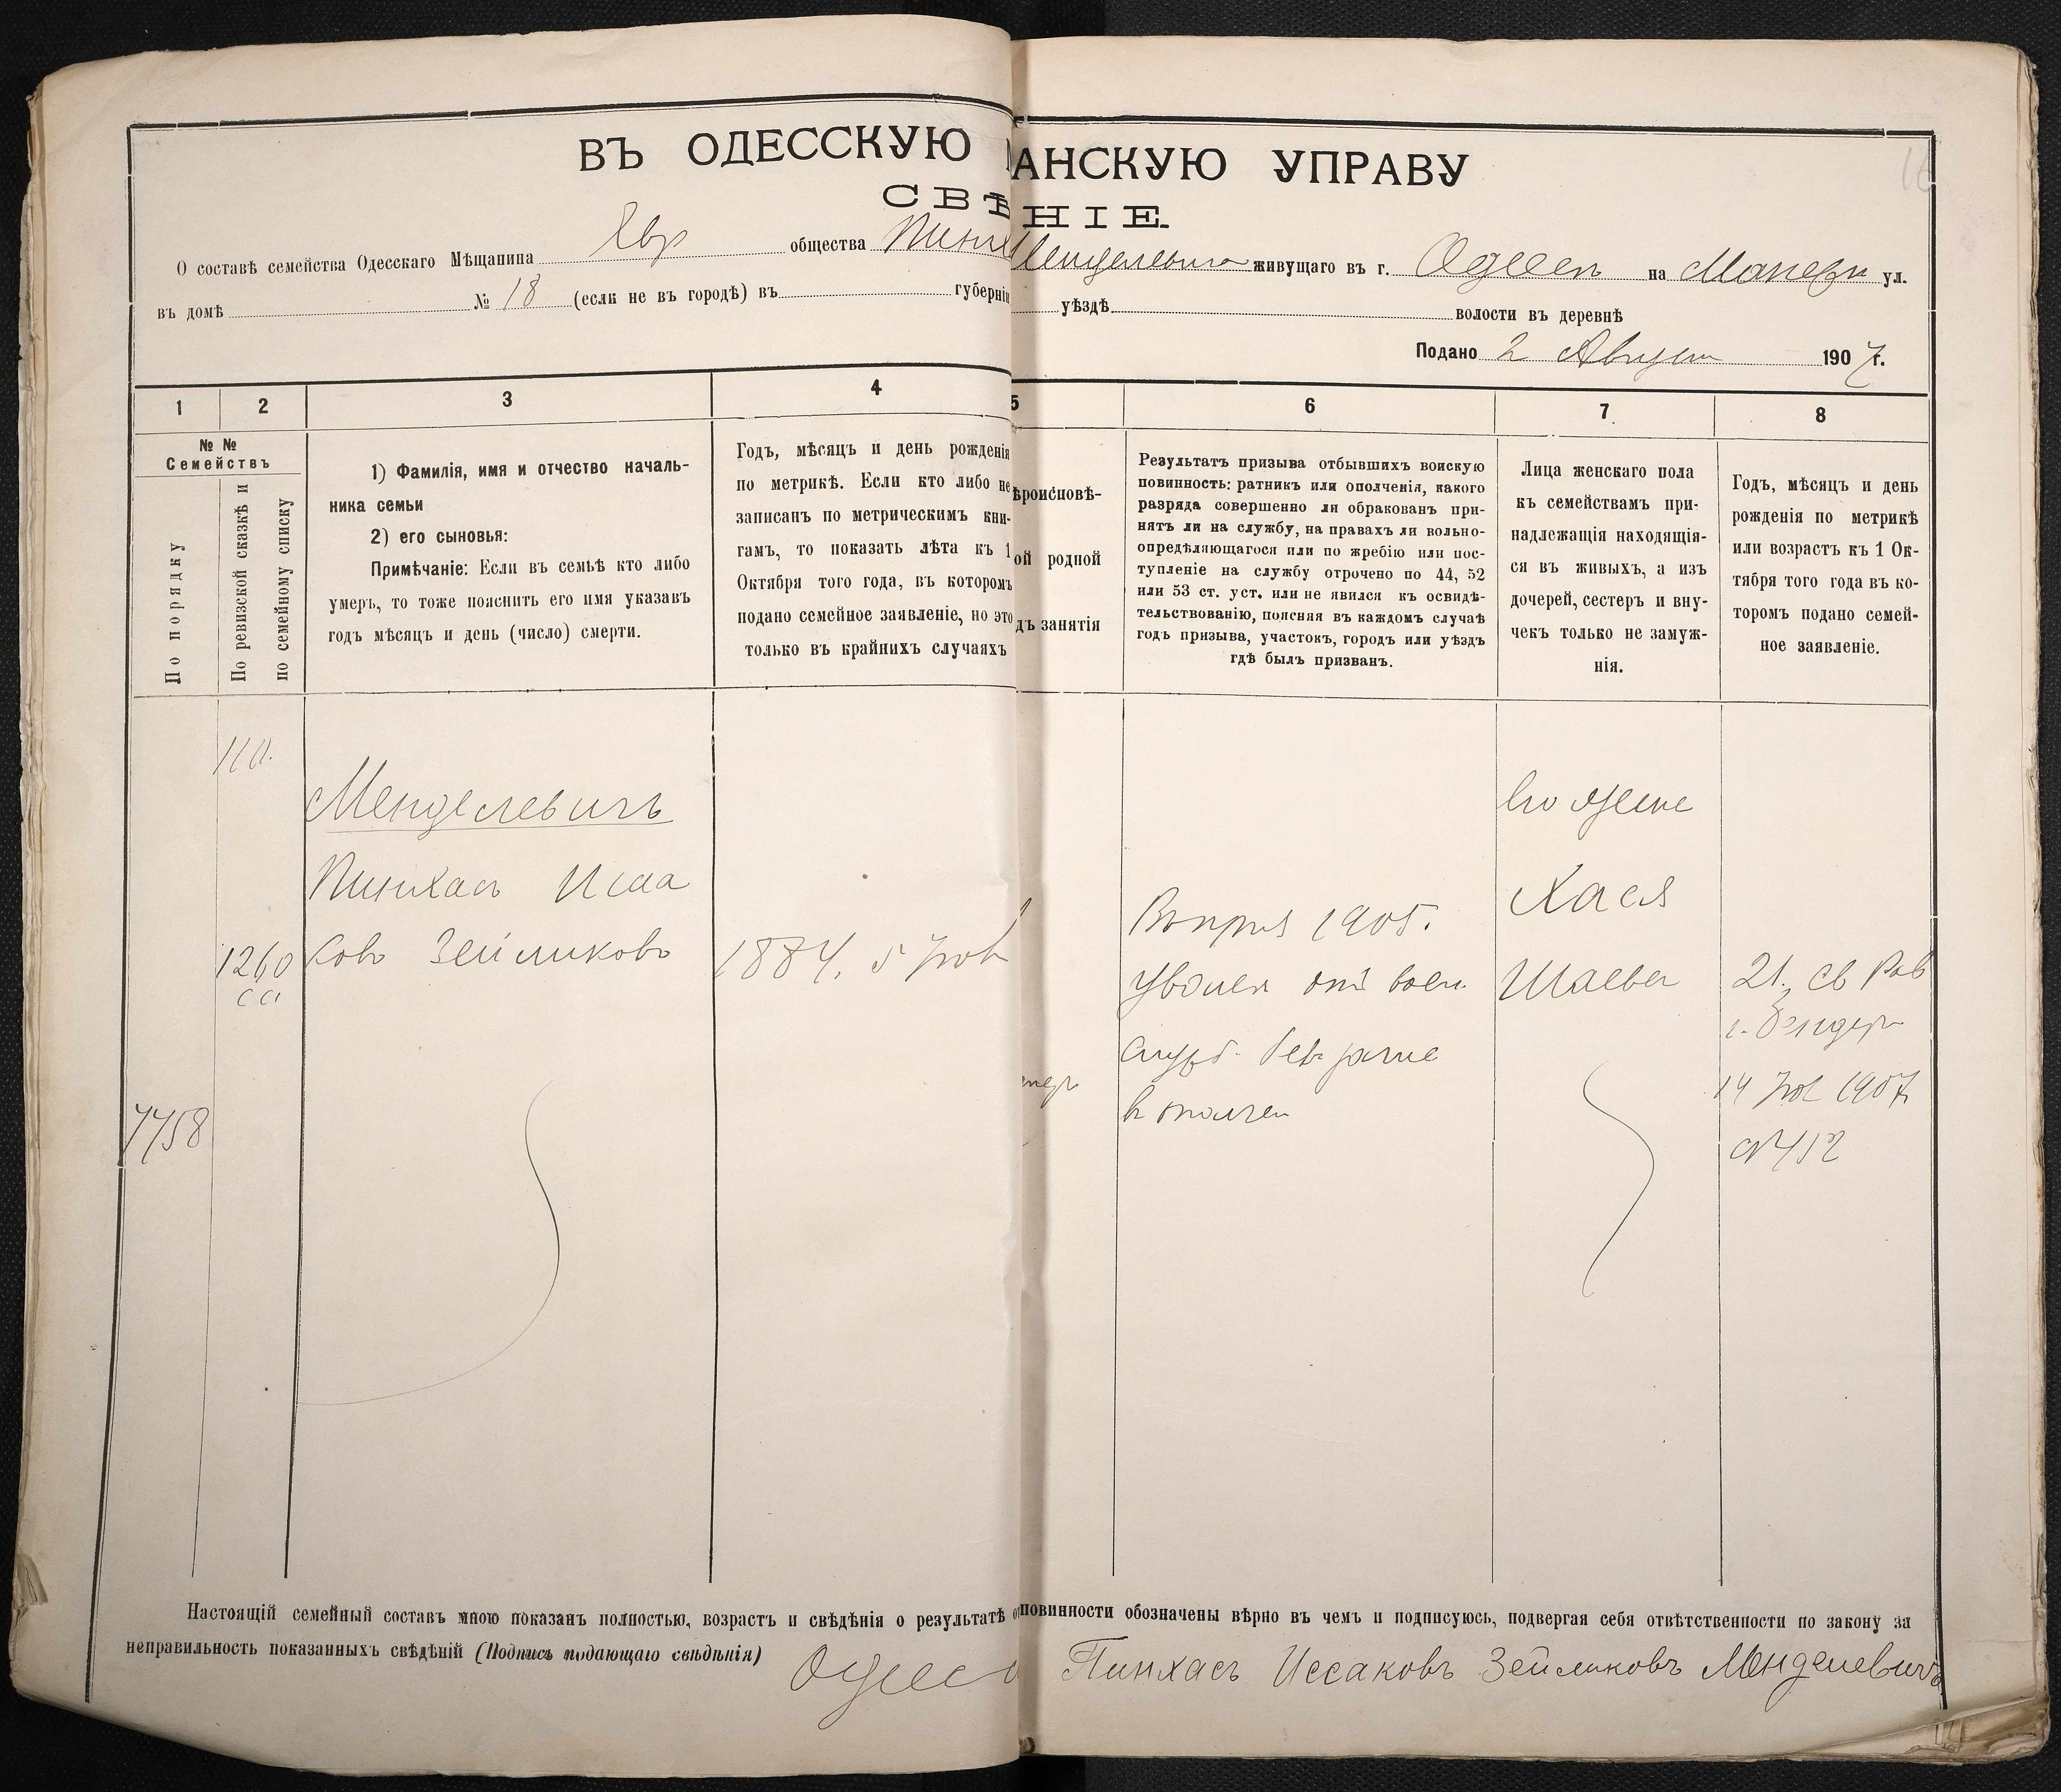 ВЪ ОДЕССКУЮ АНСКУЮ УПРАВУ
СВѢ НІЕ.
О составѣ семейства Одесскаго Мѣщанина Евр общества Пинх Менделевича живущаго въ г. Одессѣ на ул.
въ домѣ № 18 (если не въ городѣ) въ губерніи уѣздѣ волости въ деревнѣ
Подано 2 Август 1907 г.
1 2 3 4 5 6 7 8
№ №
Семействъ
По порядку
По ревизской сказкѣ и
по семейному списку
1) Фамилія, имя и отчество началь-
ника семьи
2) его сыновья:
Примѣчаніе: Если въ семьѣ кто либо
умеръ, то тоже пояснить его имя указавъ
годъ мѣсяцъ и день (число) смерти.
Годъ, мѣсяцъ и день рожденія
по метрикѣ. Если кто либо не
записанъ по метрическимъ кни-
гамъ, то показать лѣта къ 1
Октября того года, въ которомъ
подано семейное заявленіе, но это
только въ крайнихъ случаяхъ
ѣроисповѣ-
ой родной
дъ занятія
Результатъ призыва отбывшихъ воискую
повинность: ратникъ или ополченія, какого
разряда совершенно ли обракованъ при-
нятъ ли на службу, на правахъ ли вольно-
опредѣляющагося или по жребію или пос-
тупленіе на службу отрочено по 44, 52
или 53 ст. уст. или не явился къ освидѣ-
тельствованію, поясняя въ каждомъ случаѣ
годъ призыва, участокъ, городъ или уѣздъ
гдѣ былъ призванъ.
Лица женскаго пола
къ семействамъ при-
надлежащія находящія-
ся въ живыхъ, а изъ
дочерей, сестеръ и вну-
чекъ только не замуж-
нія.
Годъ, мѣсяцъ и день
рожденія по метрикѣ
или возрастъ къ 1 Ок-
тября того года въ ко-
торомъ подано семей-
ное заявленіе.
Менделевичъ
Пинхасъ Исаа
ковъ Зейликовъ
1260
1884. 5
7758
1905.
Уволен отъ воен
его жена
Хася
Шаева
21. св Рав
г. Бендер
14 1907
№ 412
Настоящій семейный составъ мною показанъ полностью, возрастъ и свѣдѣнія о результатѣ о повинности обозначены вѣрно въ чемъ и подписуюсь, подвергая себя отвѣтственности по закону за
неправильность показанныхъ свѣдѣній (Подпись подающаго свѣдѣнія) Одесс Пинхасъ Иссаковъ Зейликовъ Менделевичъ